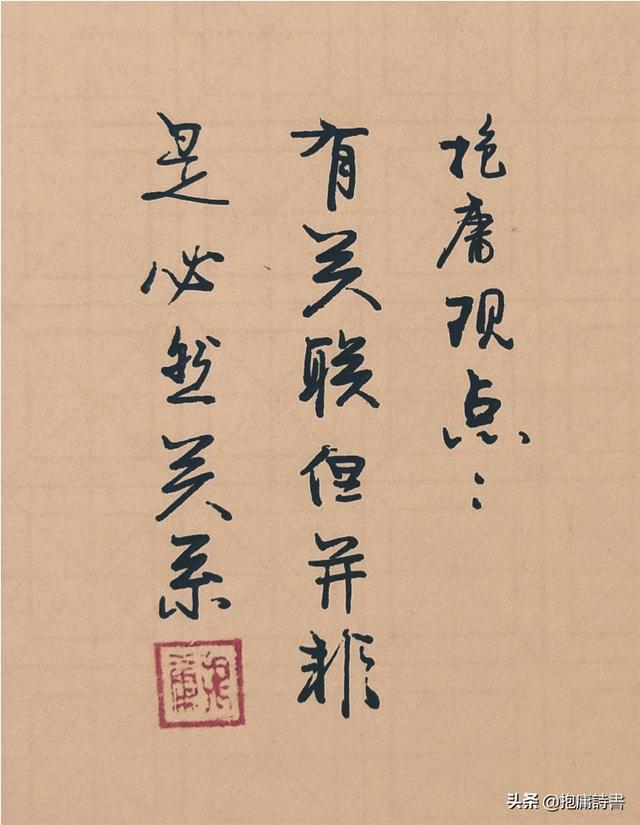 抱庸观点：
有关联但并非
是必然关系
抱庸
头条 @抱庸詩書